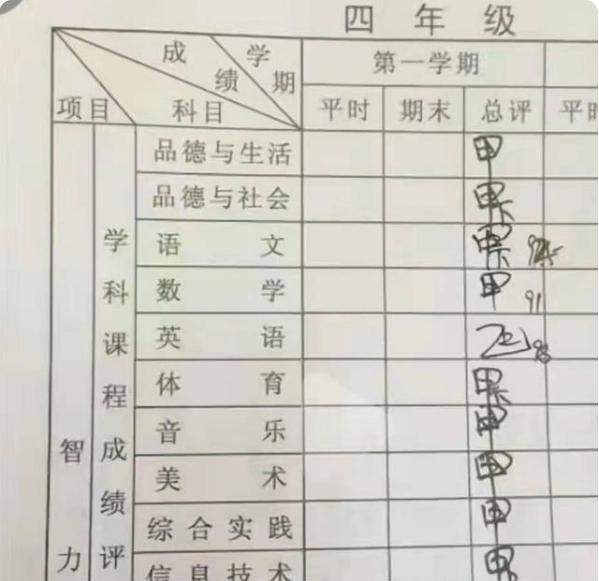 四年级
成绩 学期 第一学期
项目 科目 平时 期末 总评 平时
品德与生活 甲
品德与社会 甲
学科课程成绩评
语文
数学 甲 91
英语
体育 甲
音乐 甲
美术 甲
综合实践 甲
信息技术 甲
智力